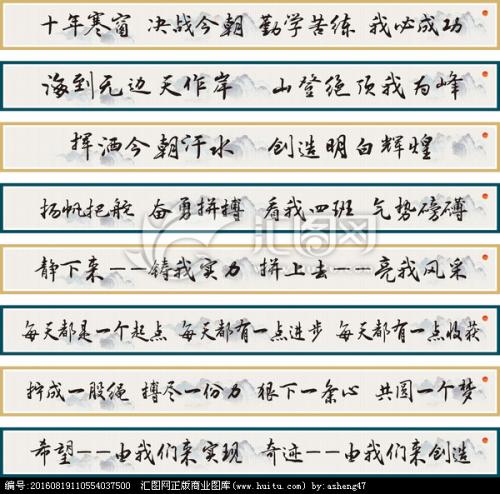 十年寒窗 决战今朝 勤学苦练 我必成功
海到无边天作岸 山登绝顶我为峰
挥洒今朝汗水 创造明日辉煌
扬帆把舵 奋勇拼搏 看我四班 气势磅礴
静下来——铸我实力 拼上去——亮我风采
每天都是一个起点 每天都有一点进步 每天都有一点收获
拧成一股绳 搏尽一份力 狠下一条心 共圆一个梦
希望——由我们来实现 奇迹——由我们来创造
汇图网
编号:20160819110554037500 汇图网正版商业图库(www.huitu.com) by:azheng47